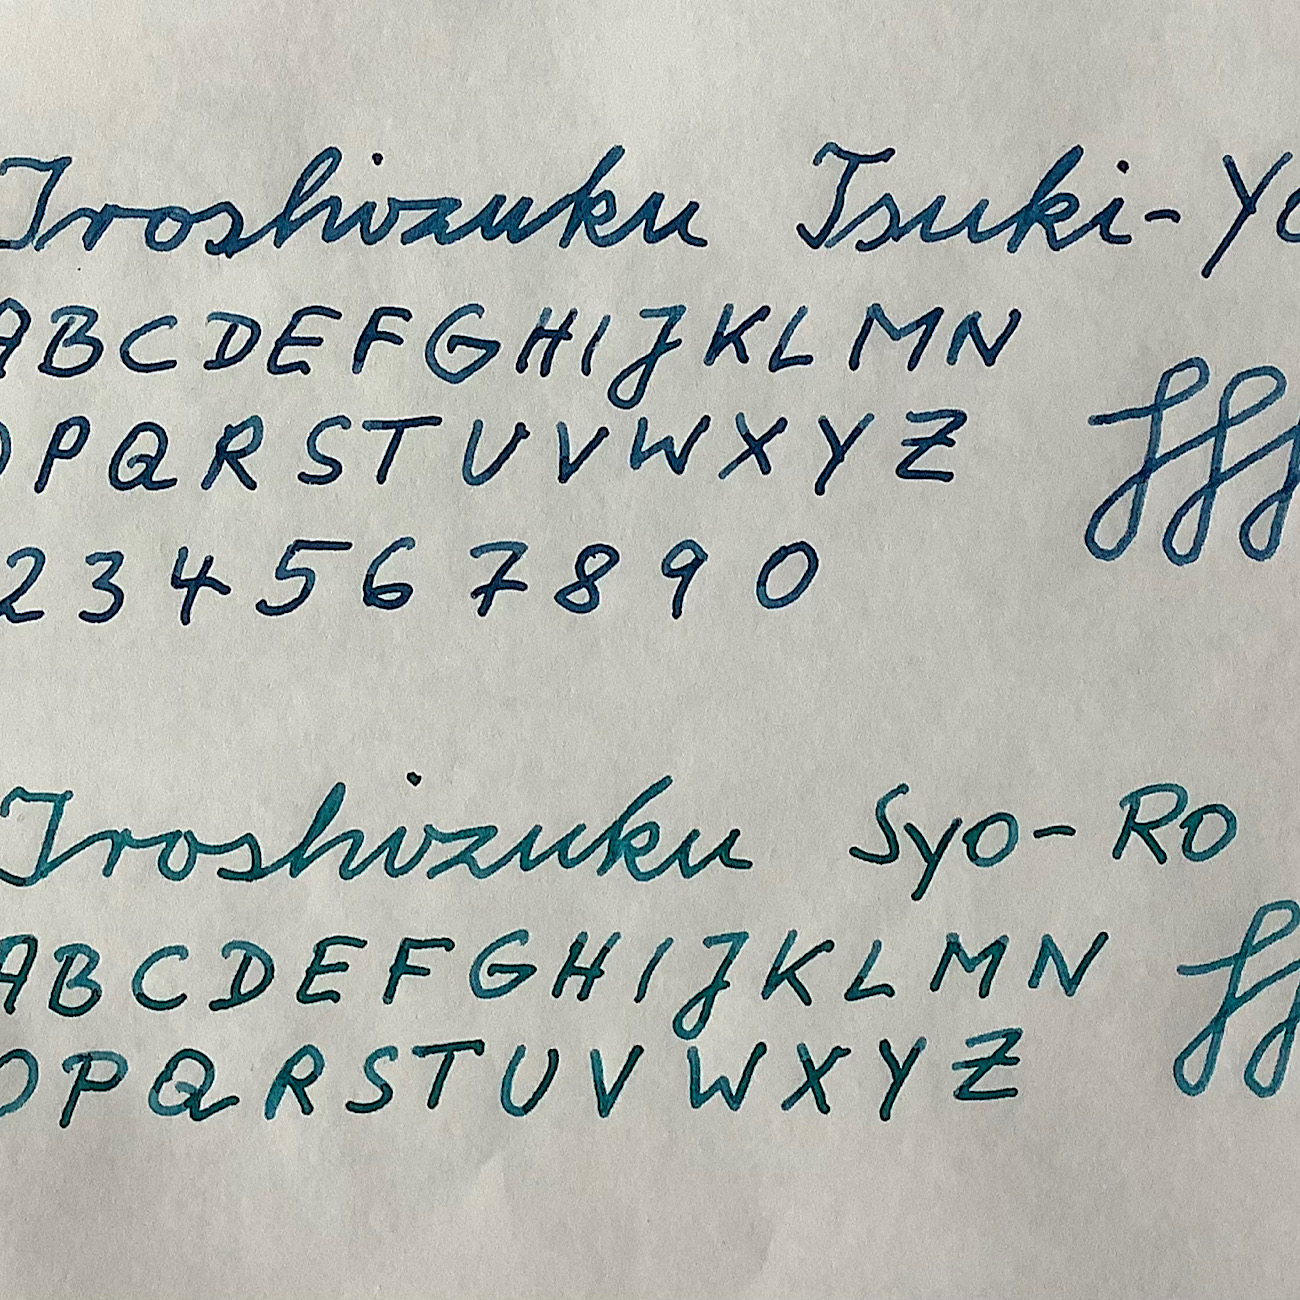 Iroshizuku Tsuki-Yo
ABCDEFGHIJKLMN
OPQRSTUVWXYZ
2 3 4 5 6 7 8 9 0
Iroshizuku Syo-Ro
ABCDEFGHIJKLMN
OPQRSTUVWXYZ